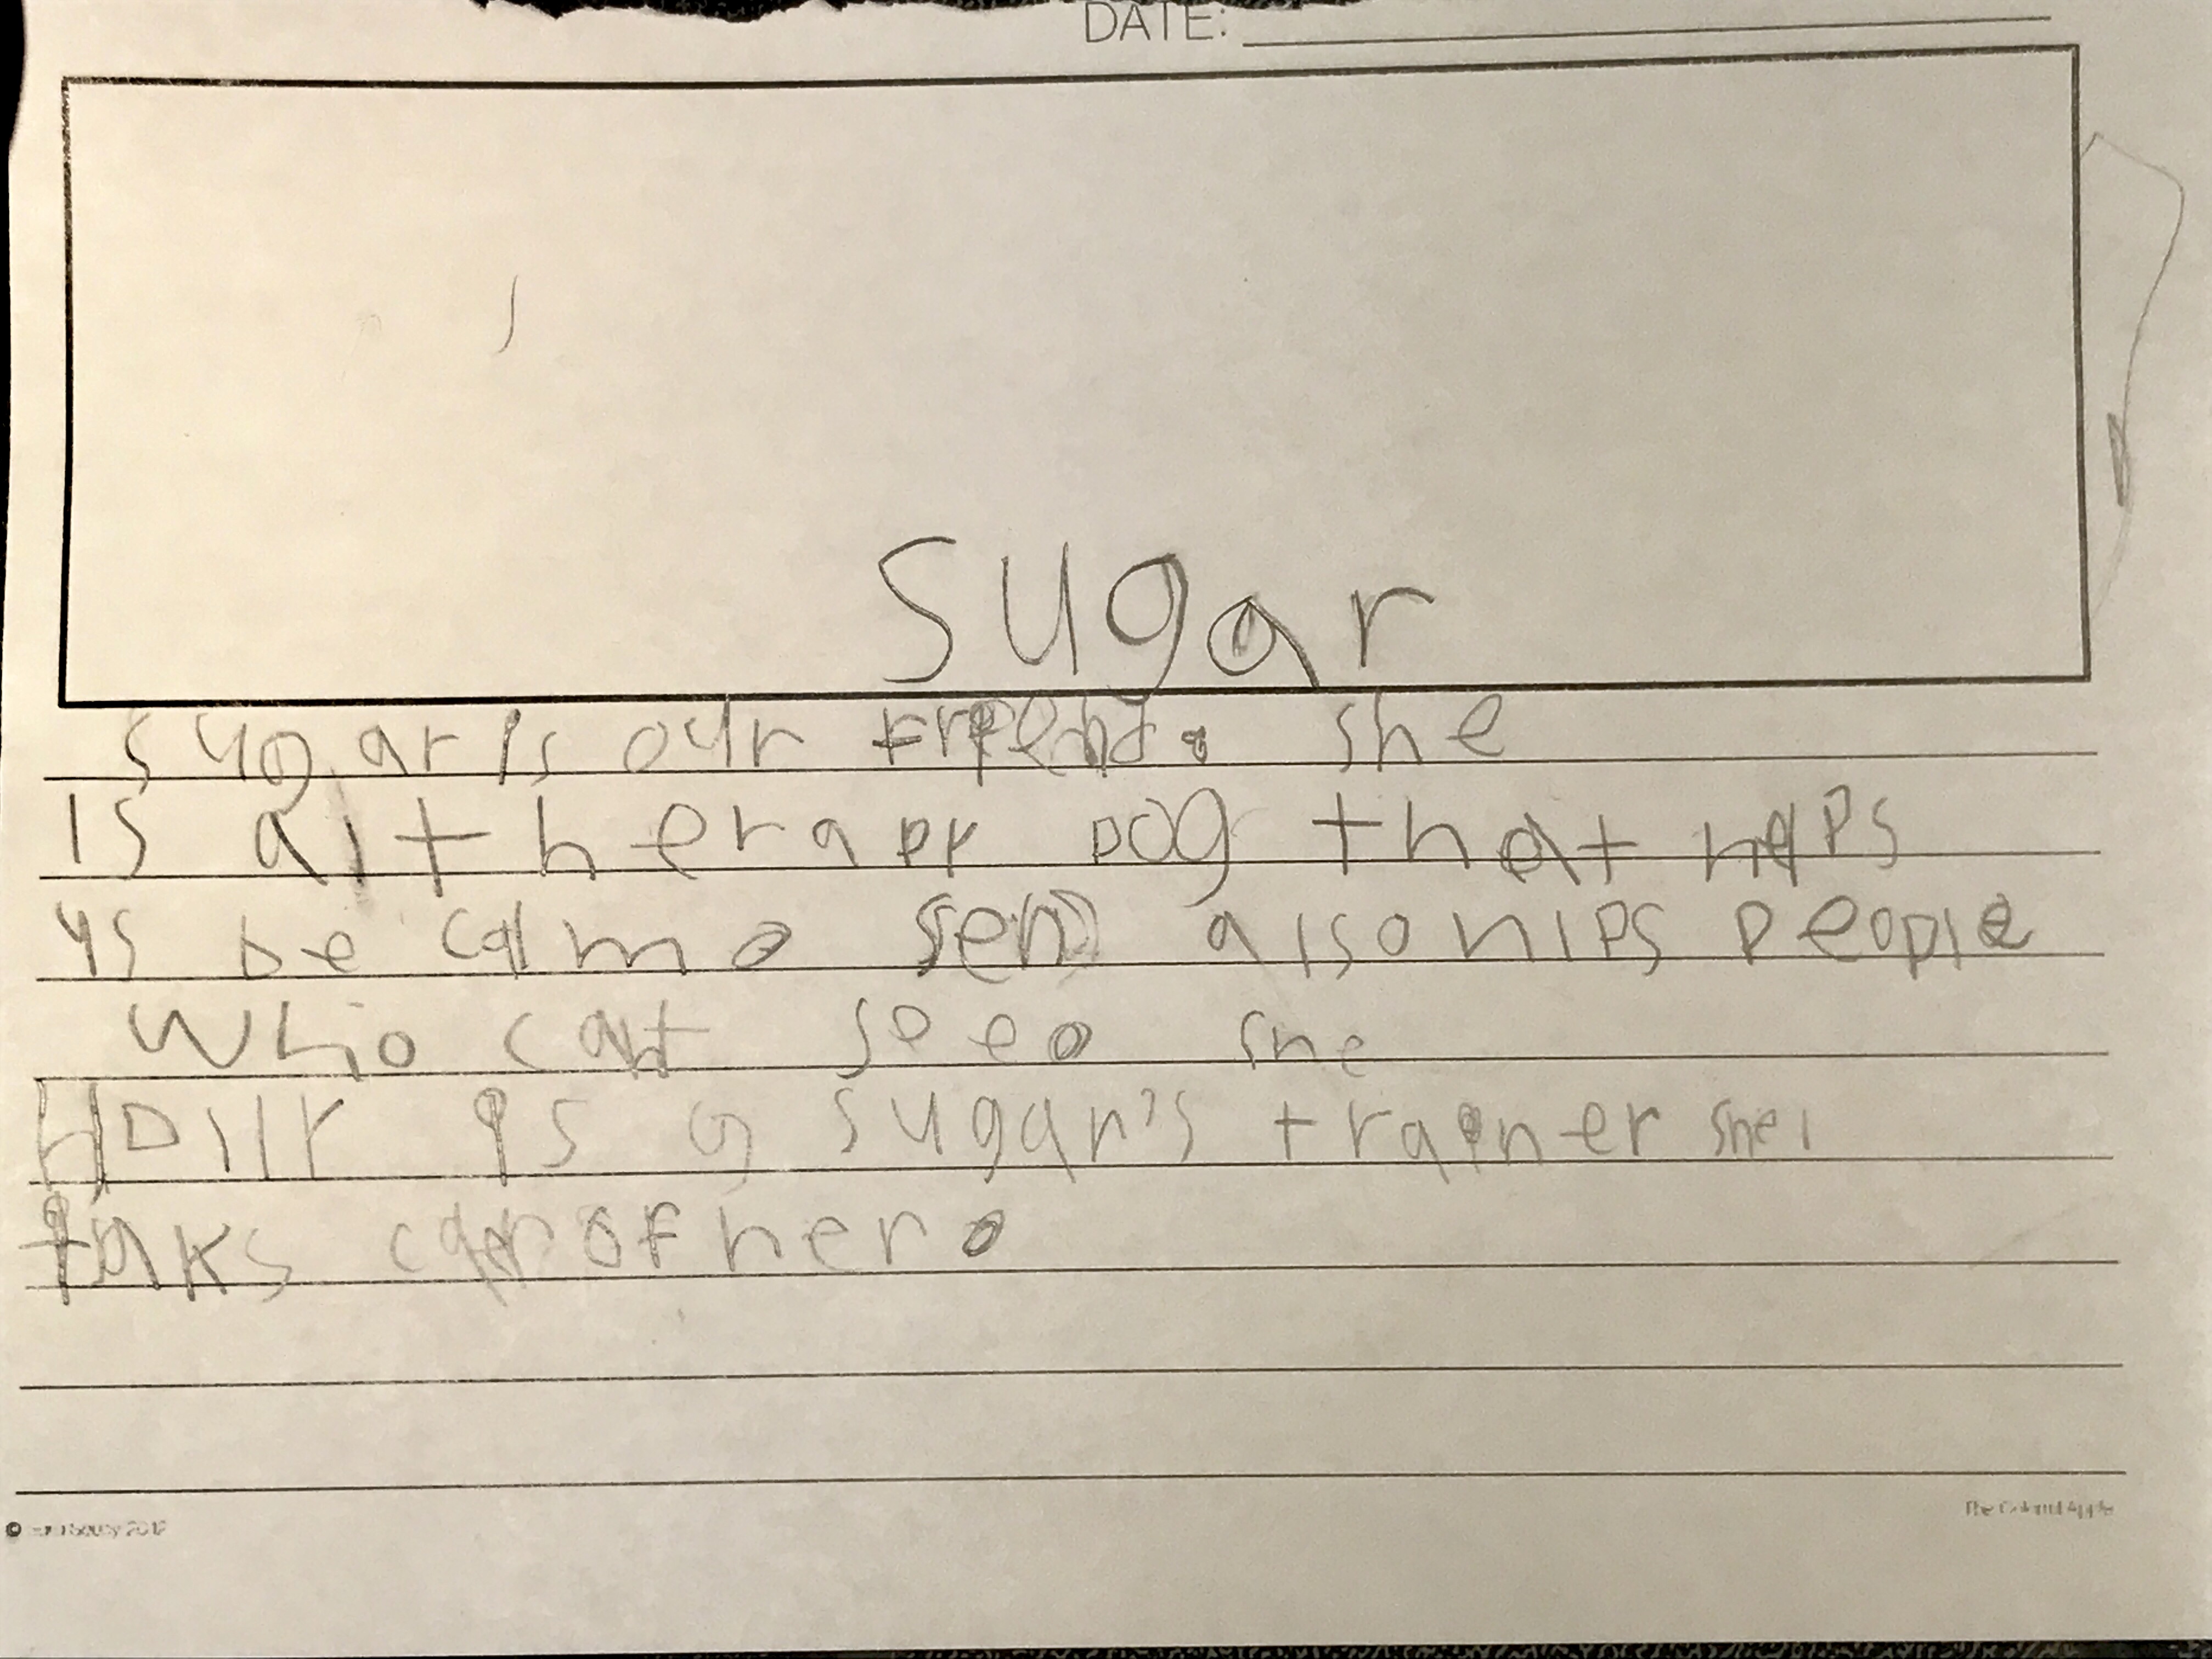 DATE:
sugar
sugar is our friend. she
is a therapy Dog that helps
us be calm. also hlps people
Who cant see. she
Holly is sugar's trainer she
taks car of her.
2012